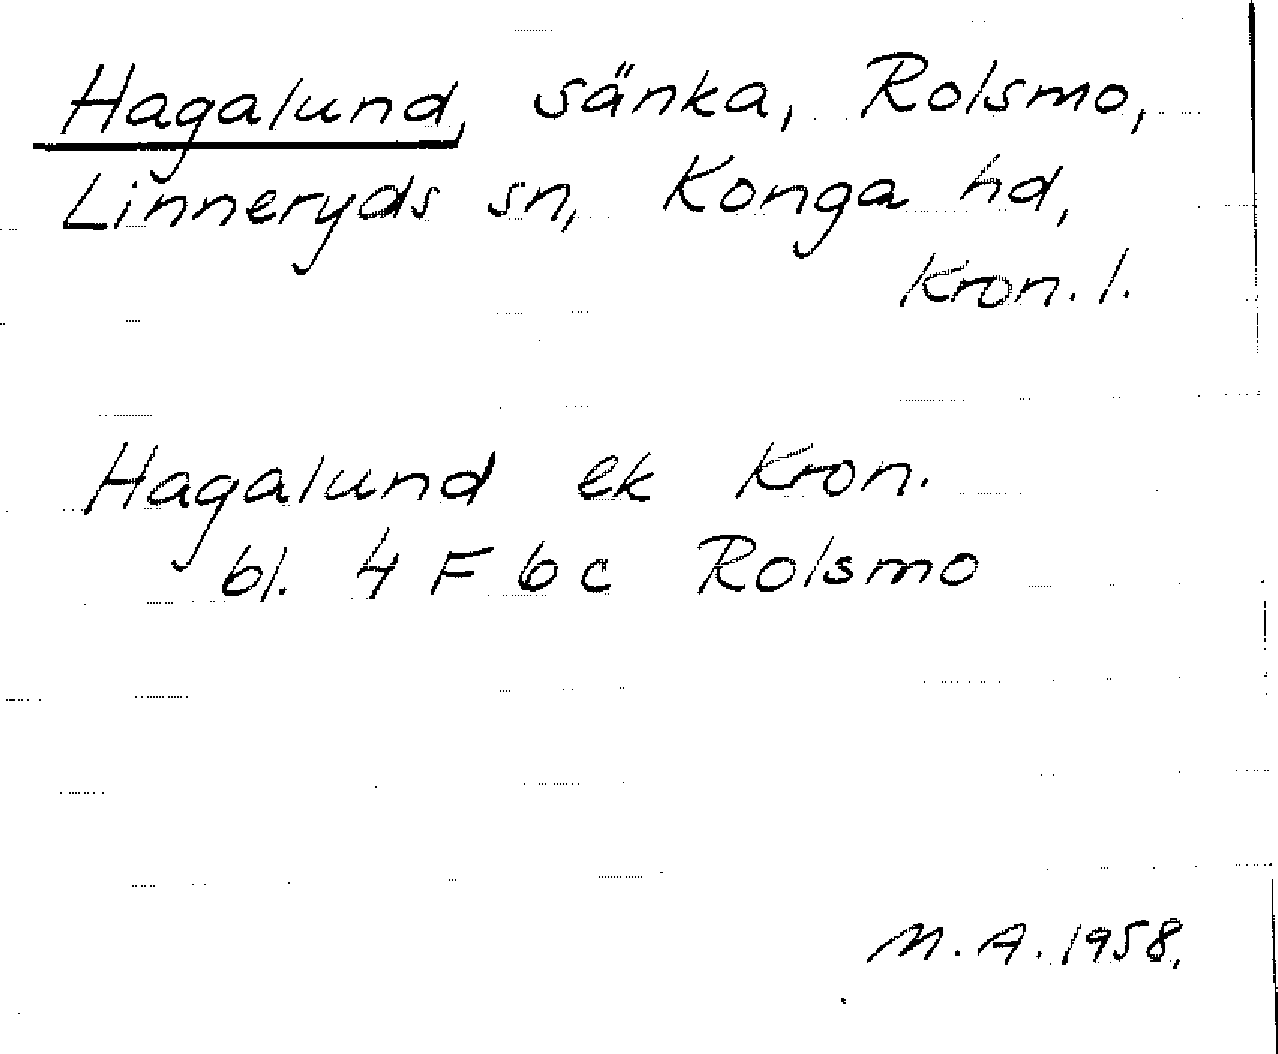 Hagalund, sänka, Rolsmo,
Linneryds sn, Konga hd,
Kron. l.
Hagalund ek Kron.
bl. 4 F 6 c Rolsmo
M. A. 1958.